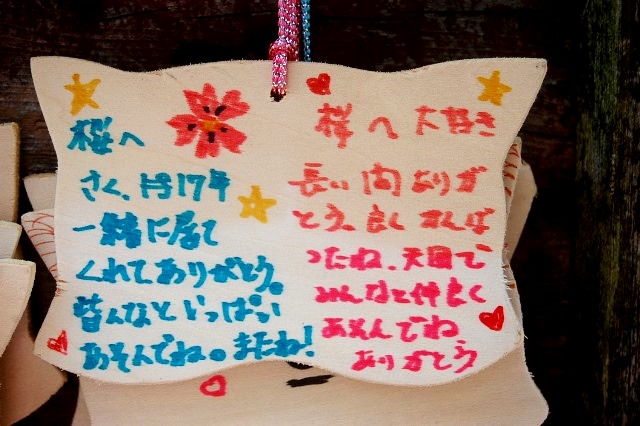 桜へ
さく、時17年
一緒に居て
くれてありがとう。
皆んなといっぱい
あそんでね。またね!
桜へ 大好き
長い間ありが
とう。良くがんば
ったね、天国で
みんなと仲良く
あそんでね
ありがとう